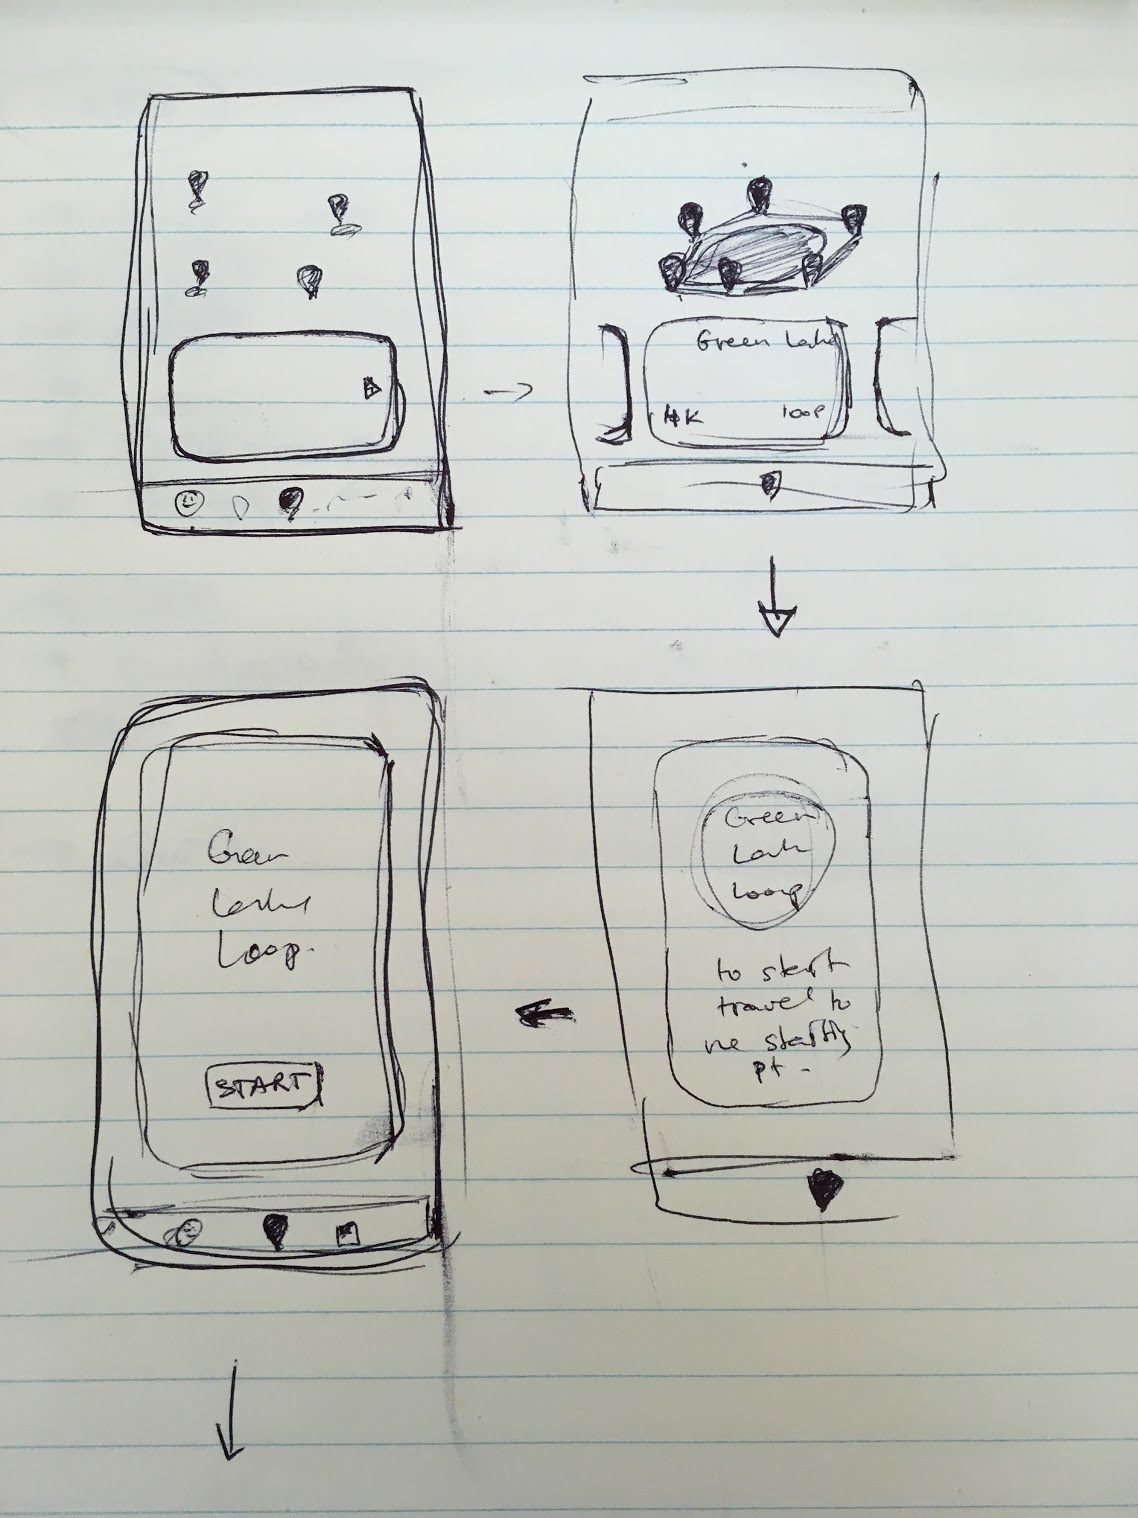 Green Lake
4K loop
Green
Lake
Loop
to start
travel to
the starting
pt.
Green
Lake
Loop.
START